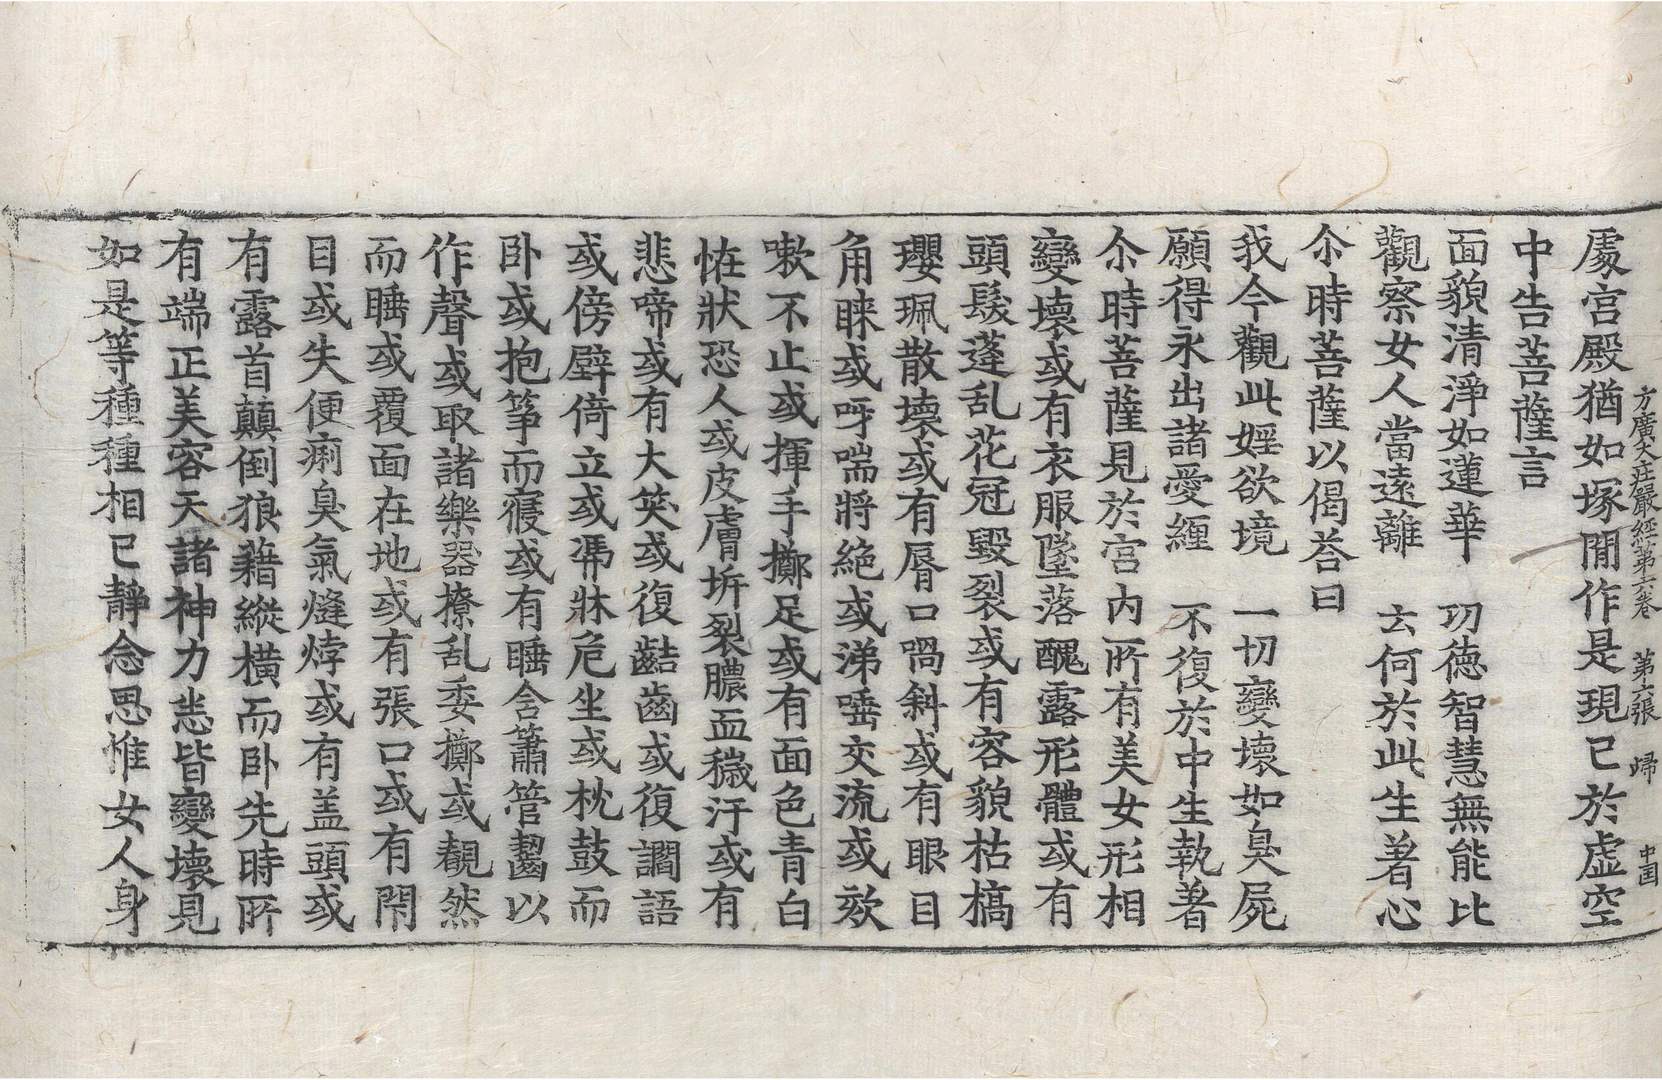 方廣大莊嚴經第六卷　第六張　歸
中国
處宮殿猶如塚閒作是現已於虛空
中告菩薩言
面貌清淨如蓮華　功德智慧無能比
觀察女人當遠離　云何於此生著心
尒時菩薩以偈荅曰
我今觀此婬欲境　一切變壞如臭屍
願得永出諸愛纏　不復於中生執著
尒時菩薩見於宮內所有美女形相
變壞或有衣服墜落醜露形體或有
頭髮蓬乱花冠毀裂或有容貌枯槁
瓔珮散壞或有脣口喎斜或有眼目
角睞或呀喘將絕或涕唾交流或欬
嗽不止或揮手擲足或有面色青白
恠狀恐人或皮膚坼裂膿血穢汙或有
悲啼或有大笑或復齘齒或復讇語
或傍壁倚立或馮牀危坐或枕鼓而
臥或抱筝而寢或有睡含簫管齧以
作聲或取諸樂器撩乱委擲或覩然
而睡或覆面在地或有張口或有閇
目或失便痢臭氣熢㶿或有盖頭或
有露首顛倒狼藉縱橫而臥先時所
有端正美容天諸神力悉皆變壞見
如是等種種相已靜念思惟女人身